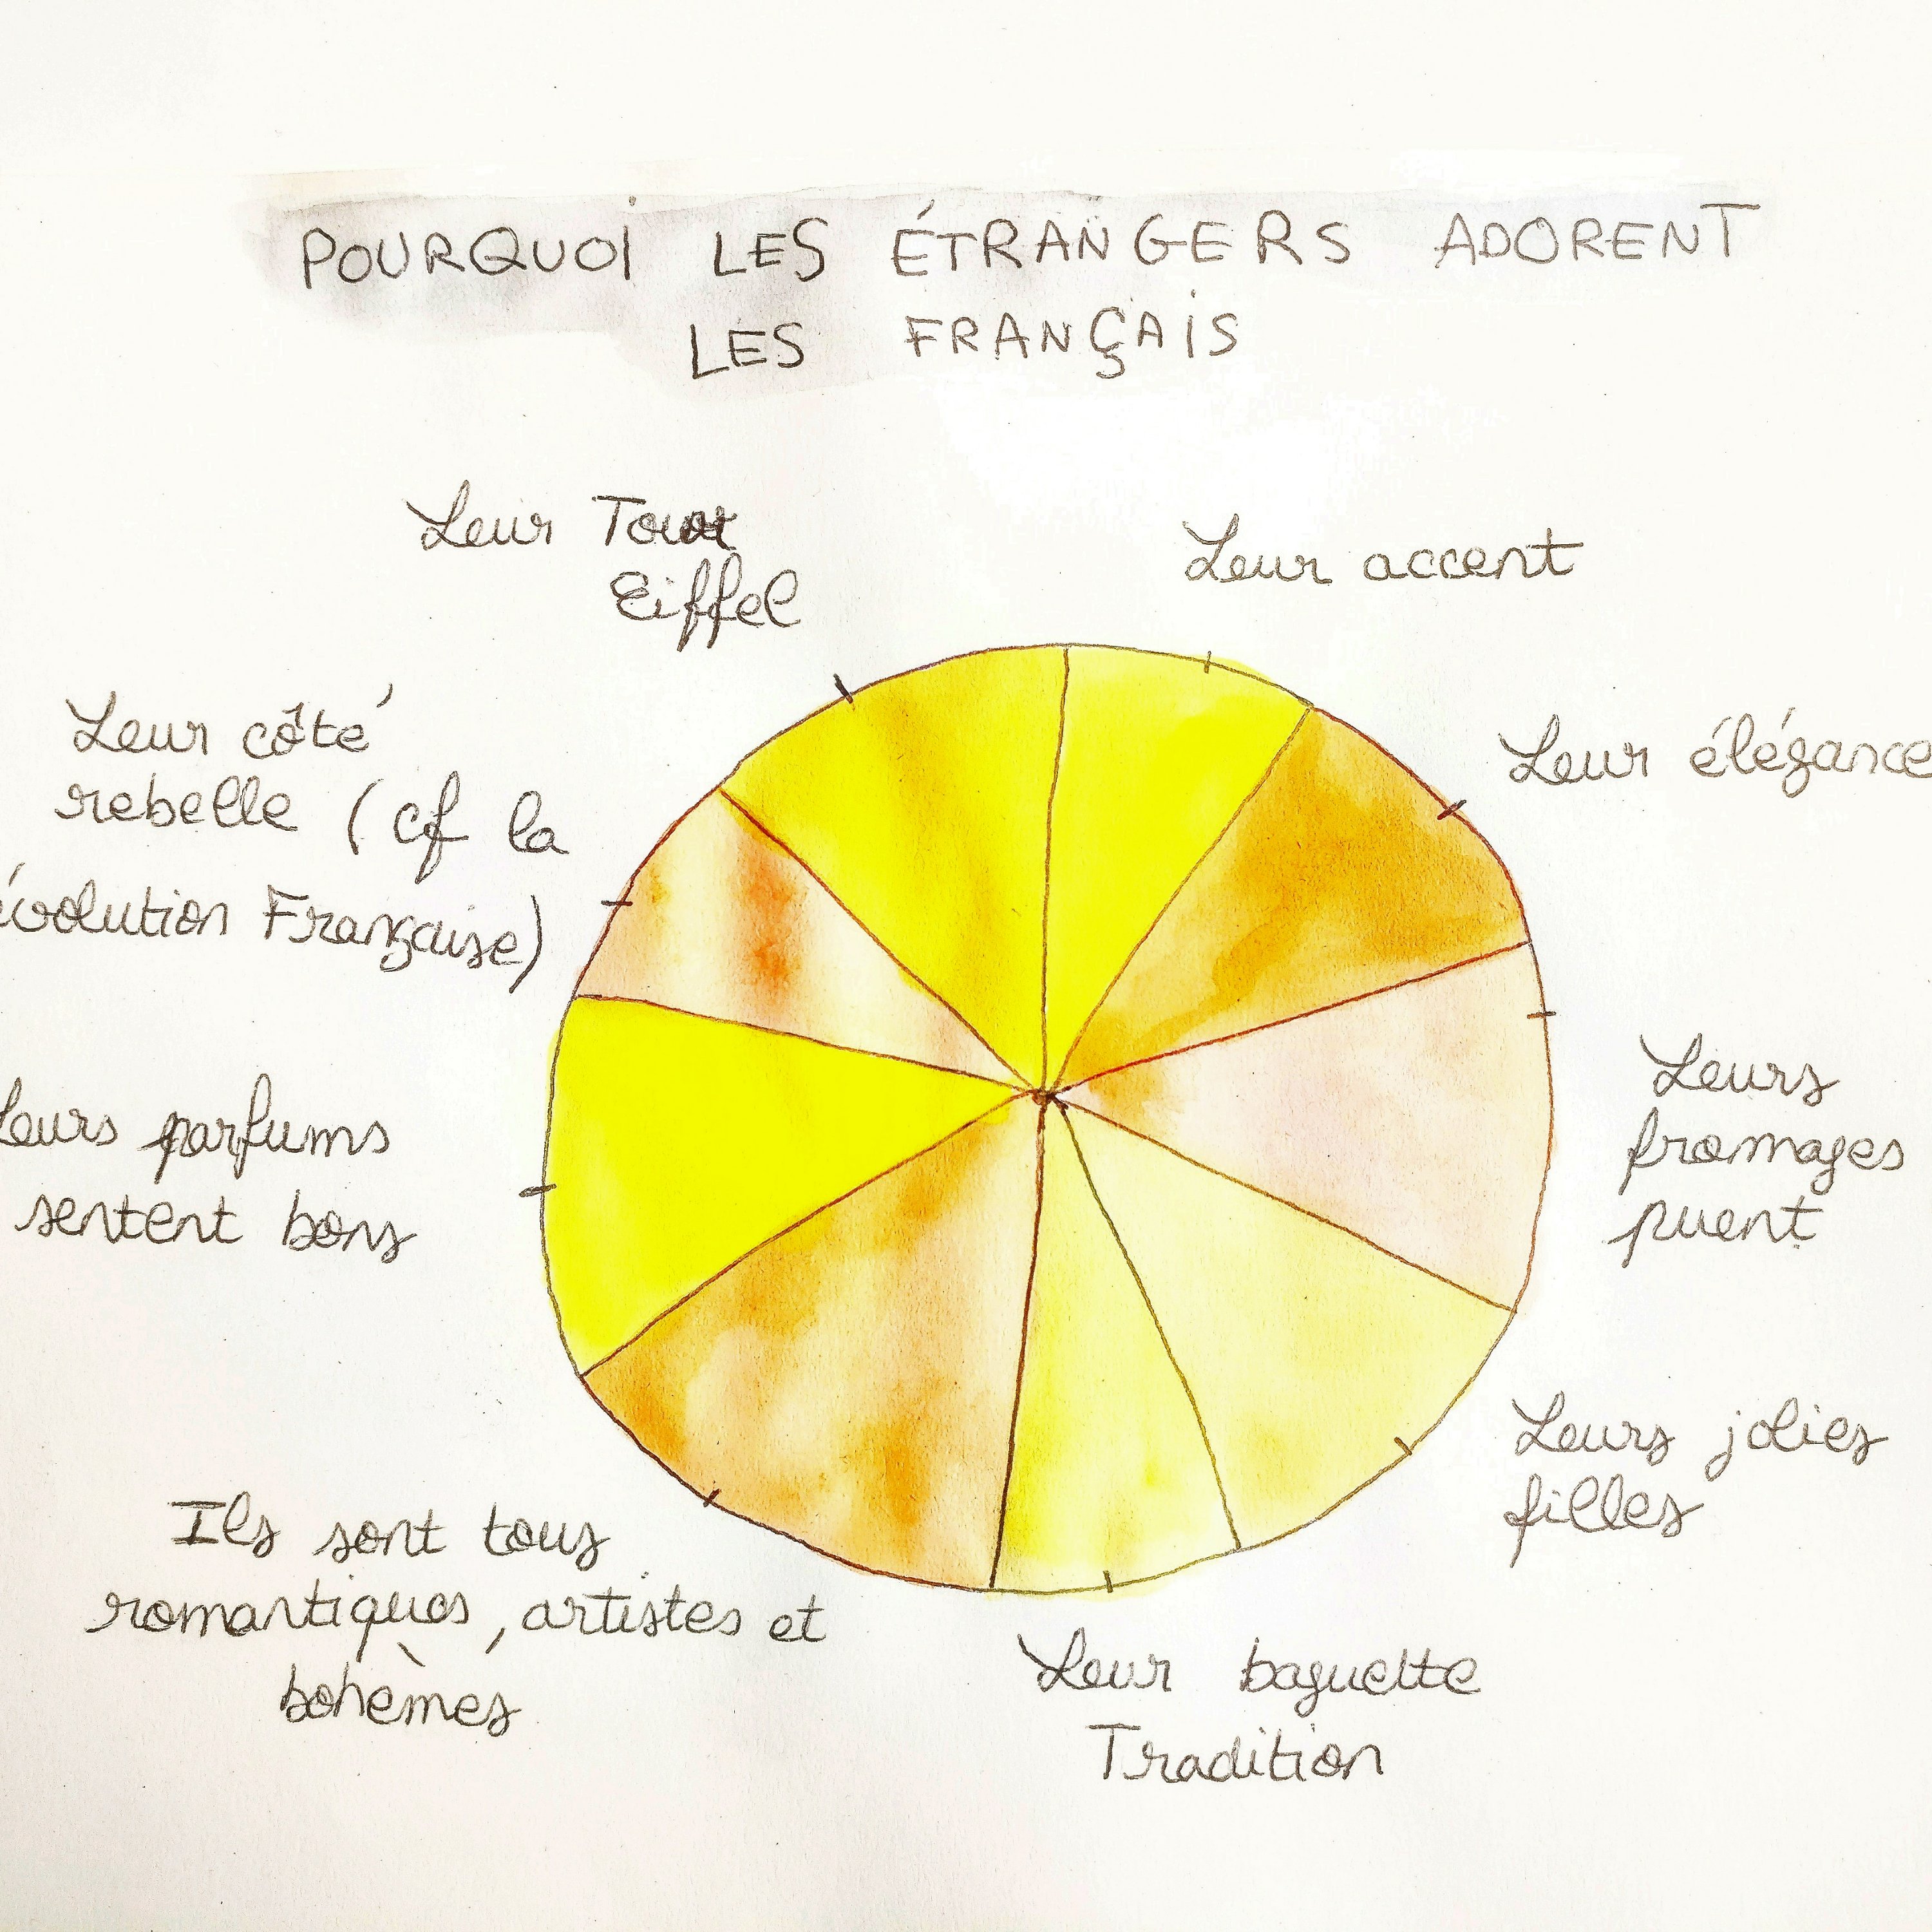 POURQUOI LES ÉTRANGERS ADORENT
LES FRANÇAIS
Leur Tour
Eiffel
Leur accent
Leur élégance
Leur côté
rebelle (cf la
évolution Française)
Leurs
fromages
puent
Leurs parfums
sentent bons
Leurs jolies
filles
Ils sont tous
romantiques, artistes et
bohèmes
Leur baguette
Tradition